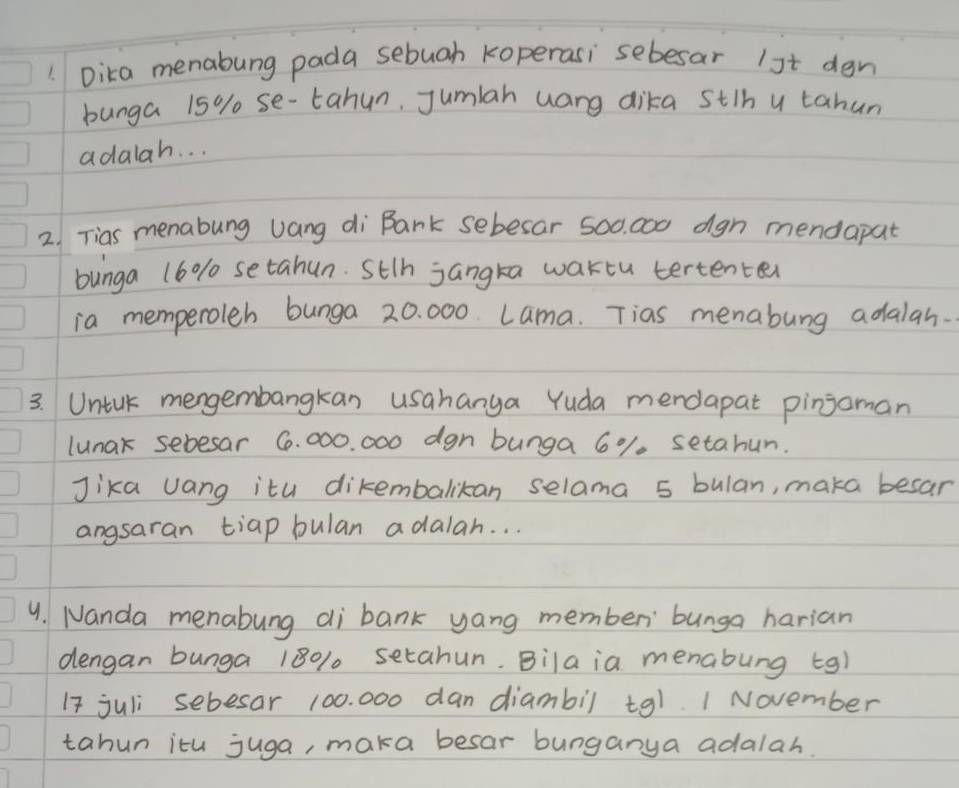 1. Dika menabung pada sebuah koperasi sebesar 1Jt dgn
bunga 15% se-tahun. Jumlah uang dika stlh 4 tahun
adalah...
2. Tias menabung uang di Bank sebesar 500.000 dgn mendapat
bunga 16% setahun. Stlh jangka waktu tertenteu
ia memperoleh bunga 20.000. Lama. Tias menabung adalah..
3. Untuk mengembangkan usahanya Yuda mendapat pinjaman
lunak sebesar 6.000.000 dgn bunga 6% setahun.
Jika uang itu dikembalikan selama 5 bulan, maka besar
angsaran tiap bulan adalah...
4. Nanda menabung di bank yang memberi bunga harian
dengan bunga 18% setahun. Bila ia menabung tgl
17 juli sebesar 100.000 dan diambil tgl. 1 November
tahun itu juga, maka besar bunganya adalah.